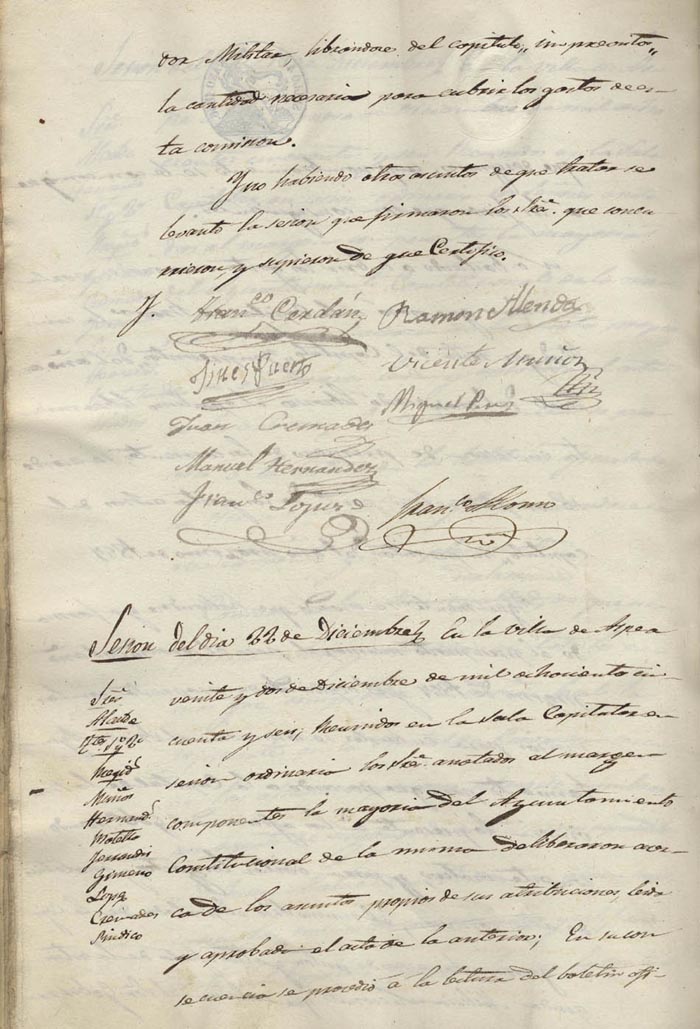 dor Militar, librandose del capitulo "imprevistos"
la cantidad necesaria para cubrir los gastos de es-
ta comision.
Y no habiendo otros asuntos de que tratar se
levanto la sesion que firmaron los Sres. que concu-
rrieron, y supieron de que Certifico.
Franco Cerdán Ramon Alenda
Gines Puerto Vicente Muñoz
Juan Cremades Miguel
Manuel Hernandez
Franco
Franco Alonso
Sesion del dia 22 de Diciembre En la villa de Aspe a
veinte y dos de Diciembre de mil ochociento cin-
cuenta y seis; Reunidos en la Sala Capitular en
sesion ordinaria los Sres. anotados al margen
componentes la mayoria del Ayuntamiento
Constitucional de la misma deliberaron acer-
ca de los asuntos propios de sus atribuciones, leida
y aprobada el acta de la anterior; En su con
secuencia se procedió á la lectura del boletin ofi-
Sres
Alcalde
Regids
Muños
Hernand
Botella
Ferrandis
Gimeno
Lopz
Cremades
Sindico